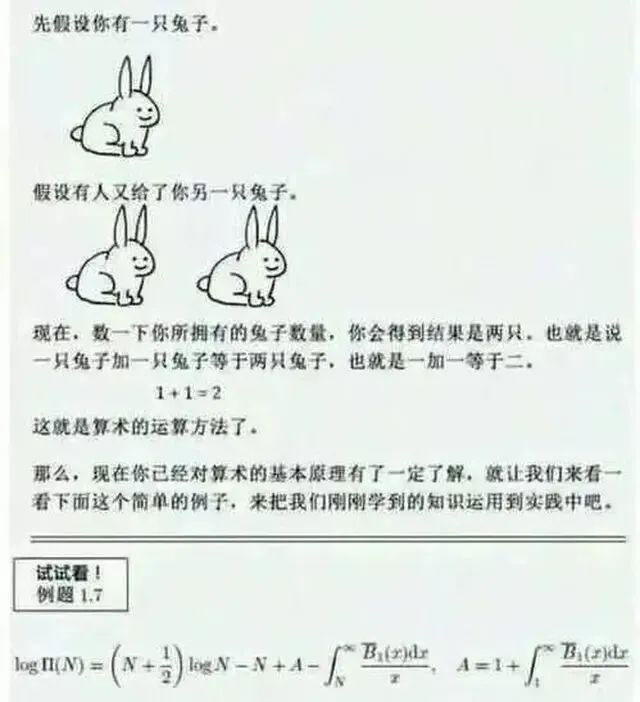 先假设你有一只兔子。
假设有人又给了你另一只兔子。
现在，数一下你所拥有的兔子数量，你会得到结果是两只。也就是说
一只兔子加一只兔子等于两只兔子，也就是一加一等于二。
1 + 1 = 2
这就是算术的运算方法了。
那么，现在你已经对算术的基本原理有了一定了解，就让我们来看一
看下面这个简单的例子，来把我们刚刚学到的知识运用到实践中吧。
试试看！
例题 1.7
log Π(N) = (N + 1/2) log N − N + A − ∫_N^∞ B̅₁(x)dx / x, A = 1 + ∫_1^∞ B̅₁(x)dx / x